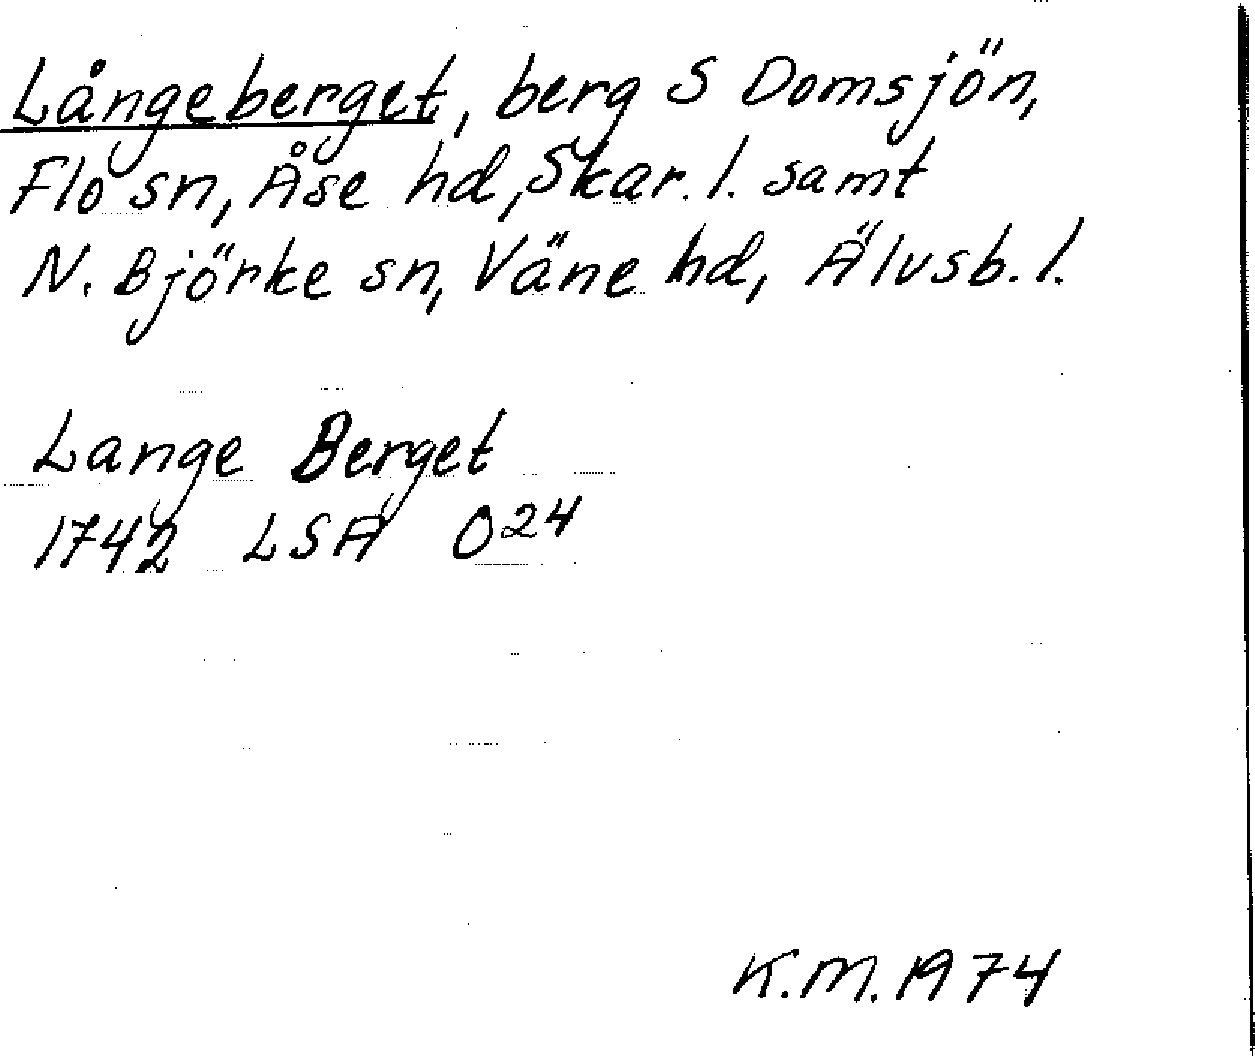 Långeberget, berg S Domsjön,
Flo sn, Åse hd, Skar. l. samt
N. Björke sn, Väne hd, Älvsb. l.
Lange Berget
1742 LSA O24
K.M. 1974